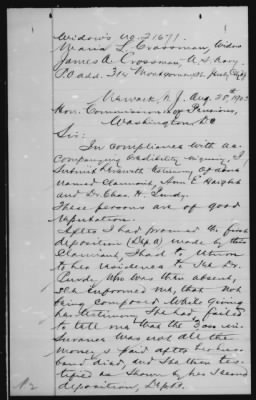 Widow's No. 21671.
Maria L. Crossman, Widow
James A. Crossman, U.S. Navy.
P.O. add. 314 Montgomery St. Jersey City
Newark, N.J. Aug. 28th, 190
Hon. Commissioner of Pensions,
Washington, D.C.
Sir:
In compliance with ac-
companying credibility inquiry, I
submit herewith testimony of above
named claimant, Ann E. Haight
and Dr. Chas. H. Purdy.
These persons are of good
reputation.
After I had procured the first
deposition (Dep. A) made by this
claimant, I had to return
to her residence to see Dr.
Purdy, who was then absent,
she informed me, that not
being composed while giving
her testimony she had failed
to tell me that the 300 in-
surance was not all the
money, paid after her hus-
band died, and she then tes-
tified as shown by her second
deposition, Dep. B.